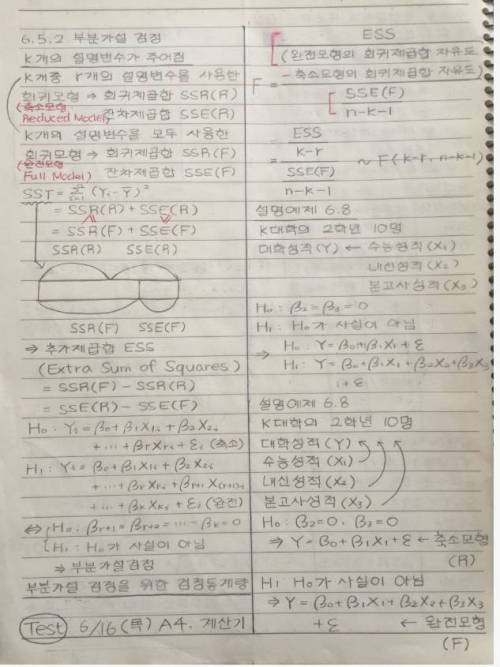 6.5.2 부분가설 검정
k개의 설명변수가 주어짐
k개중 r개의 설명변수를 사용한
회귀모형 → 회귀제곱합 SSR(R)
(축소모형 Reduced Model) 잔차제곱합 SSE(R)
k개의 설명변수를 모두 사용한
회귀모형 → 회귀제곱합 SSR(F)
(완전모형 Full Model) 잔차제곱합 SSE(F)
SST = Σ(Yᵢ-Ȳ)²
= SSR(R) + SSE(R)
= SSR(F) + SSE(F)
SSR(R) SSE(R)
SSR(F) SSE(F)
⇒ 추가제곱합 ESS
(Extra Sum of Squares)
= SSR(F) - SSR(R)
= SSE(R) - SSE(F)
H₀ : Yᵢ = β₀+β₁X₁ᵢ+β₂X₂ᵢ
+ ··· + βrXrᵢ + εᵢ (축소)
H₁ : Yᵢ = β₀+β₁X₁ᵢ+β₂X₂ᵢ
+ ··· + βrXrᵢ + βr+₁X(r+1)ᵢ
+ ··· + βkXkᵢ + εᵢ (완전)
⇔ H₀ : βr+₁ = βr+₂ = ··· = βk = 0
H₁ : H₀가 사실이 아님
⇒ 부분가설 검정
부분가설 검정을 위한 검정통계량
Test 6/16(목) A4. 계산기
ESS
(완전모형의 회귀제곱합 자유도)
F = -축소모형의 회귀제곱합 자유도
SSE(F)
n-k-1
ESS
k-r
= ~ F(k-r, n-k-1)
SSE(F)
n-k-1
설명예제 6.8
K대학의 2학년 10명
대학성적(Y) ← 수능성적(X₁)
내신성적(X₂)
본고사성적(X₃)
H₀ : β₂ = β₃ = 0
H₁ : H₀가 사실이 아님
⇒ H₀ : Y = β₀+β₁X₁+ε
H₁ : Y = β₀+β₁X₁+β₂X₂+β₃X₃
+ε
설명예제 6.8
K대학의 2학년 10명
대학성적(Y)
수능성적(X₁)
내신성적(X₂)
본고사성적(X₃)
H₀ : β₂=0, β₃=0
⇒ Y = β₀+β₁X₁+ε ← 축소모형
(R)
H₁ H₀가 사실이 아님
⇒ Y = β₀+β₁X₁+β₂X₂+β₃X₃
+ε ← 완전모형
(F)